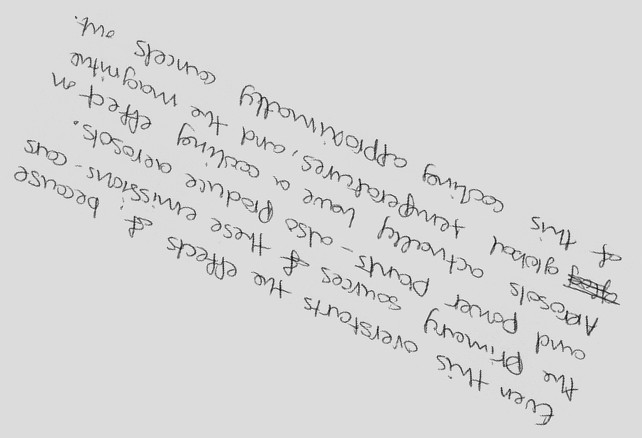 Even this overstarts the effects ; because
the primary sources these emissions - cars
and power plants - also produce aerosols.
Aerosols actually have a cooling effect on
global temperatures, and the magnitue
of this cooling approximatly cancels out.